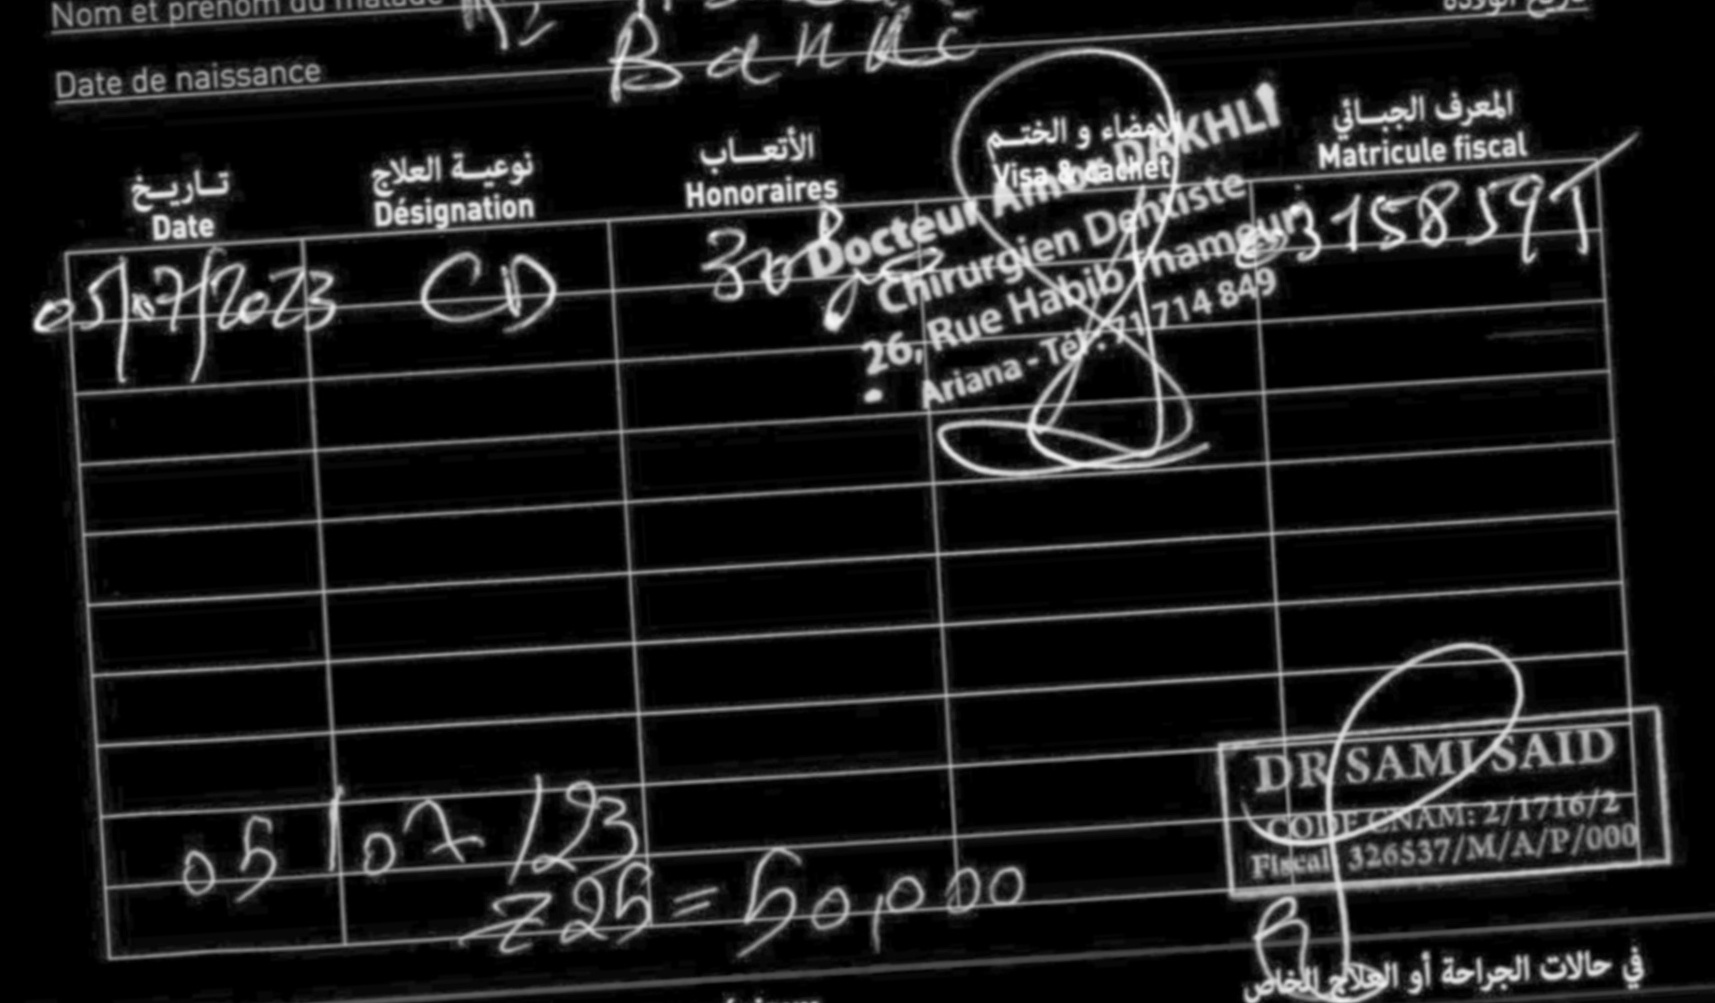 Nom et prénom du malade
تاريخ الولادة
Date de naissance
تـاريـخ
Date
نوعيـة العلاج
Désignation
الأتعـــاب
Honoraires
الإمضاء و الختـم
Visa & cachet
المعرف الجبـائي
Matricule fiscal
05/07/2023 CD
Docteur Amor DAKHLI
Chirurgien Dentiste
26, Rue Habib Thameur
Ariana - Tél : 71 714 849
DR SAMI SAID
CODE CNAM: 2/1716/2
Fiscal: 326537/M/A/P/000
05/07/23
Z25 = 50,000
في حالات الجراحة أو العلاج الخاص